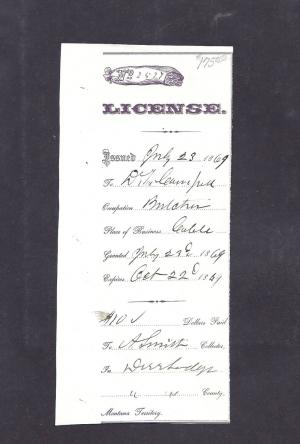 $175.00
No 2427
LICENSE.
Issued July 23 1869
To Campbell
Occupation Butcher
Place of Business Cable
Granted July 23d 1869
Expires Oct 22d 1869
$10 Dollars Paid
To A Smith Collector,
In Deerlodge
County,
Montana Territory.